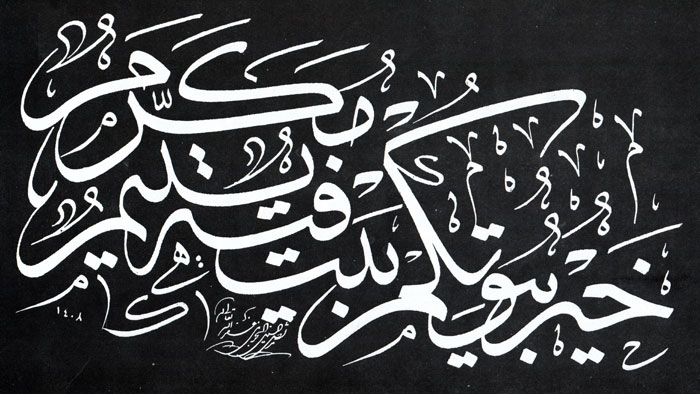 خَيْرُ بُيُوتِكُمْ بَيْتٌ فِيهِ يَتِيمٌ مُكَرَّمٌ
١٤٠٨